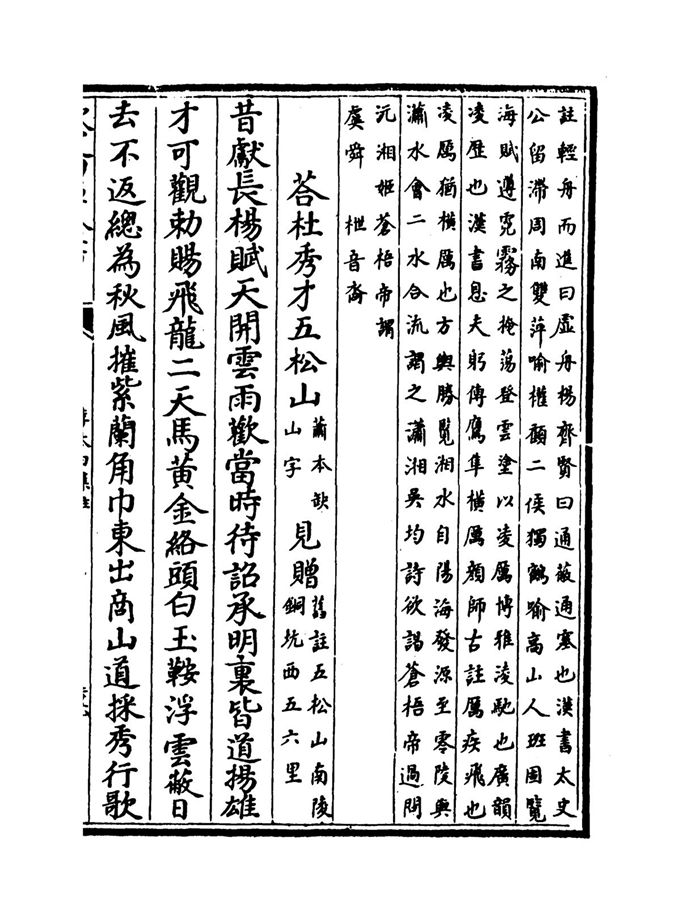 註輕舟而進曰虛舟楊齊賢曰通蔽通塞也漢書太史
公留滯周南雙萍喻權顧二侯獨鶴喻高山人班固覽
海賦遵霓霧之掩蕩登雲塗以凌厲博雅凌馳也廣韻
凌歴也漢書息夫躬傳鷹隼横厲顔師古註厲疾飛也
凌厲猶横厲也方輿勝覽湘水自陽海發源至零陵與
瀟水會二水合流謂之瀟湘吳均詩欲謁蒼梧帝過問
沅湘姬蒼梧帝謂
虞舜　枻音裔
荅杜秀才五松山 蕭本缺山字 見贈 舊註五松山南陵銅坑西五六里
昔獻長楊賦天開雲雨歡當時待詔承明裏皆道揚雄
才可觀勅賜飛龍二天馬黄金絡頭白玉鞍浮雲蔽日
去不返總為秋風摧紫蘭角巾東出商山道採秀行歌